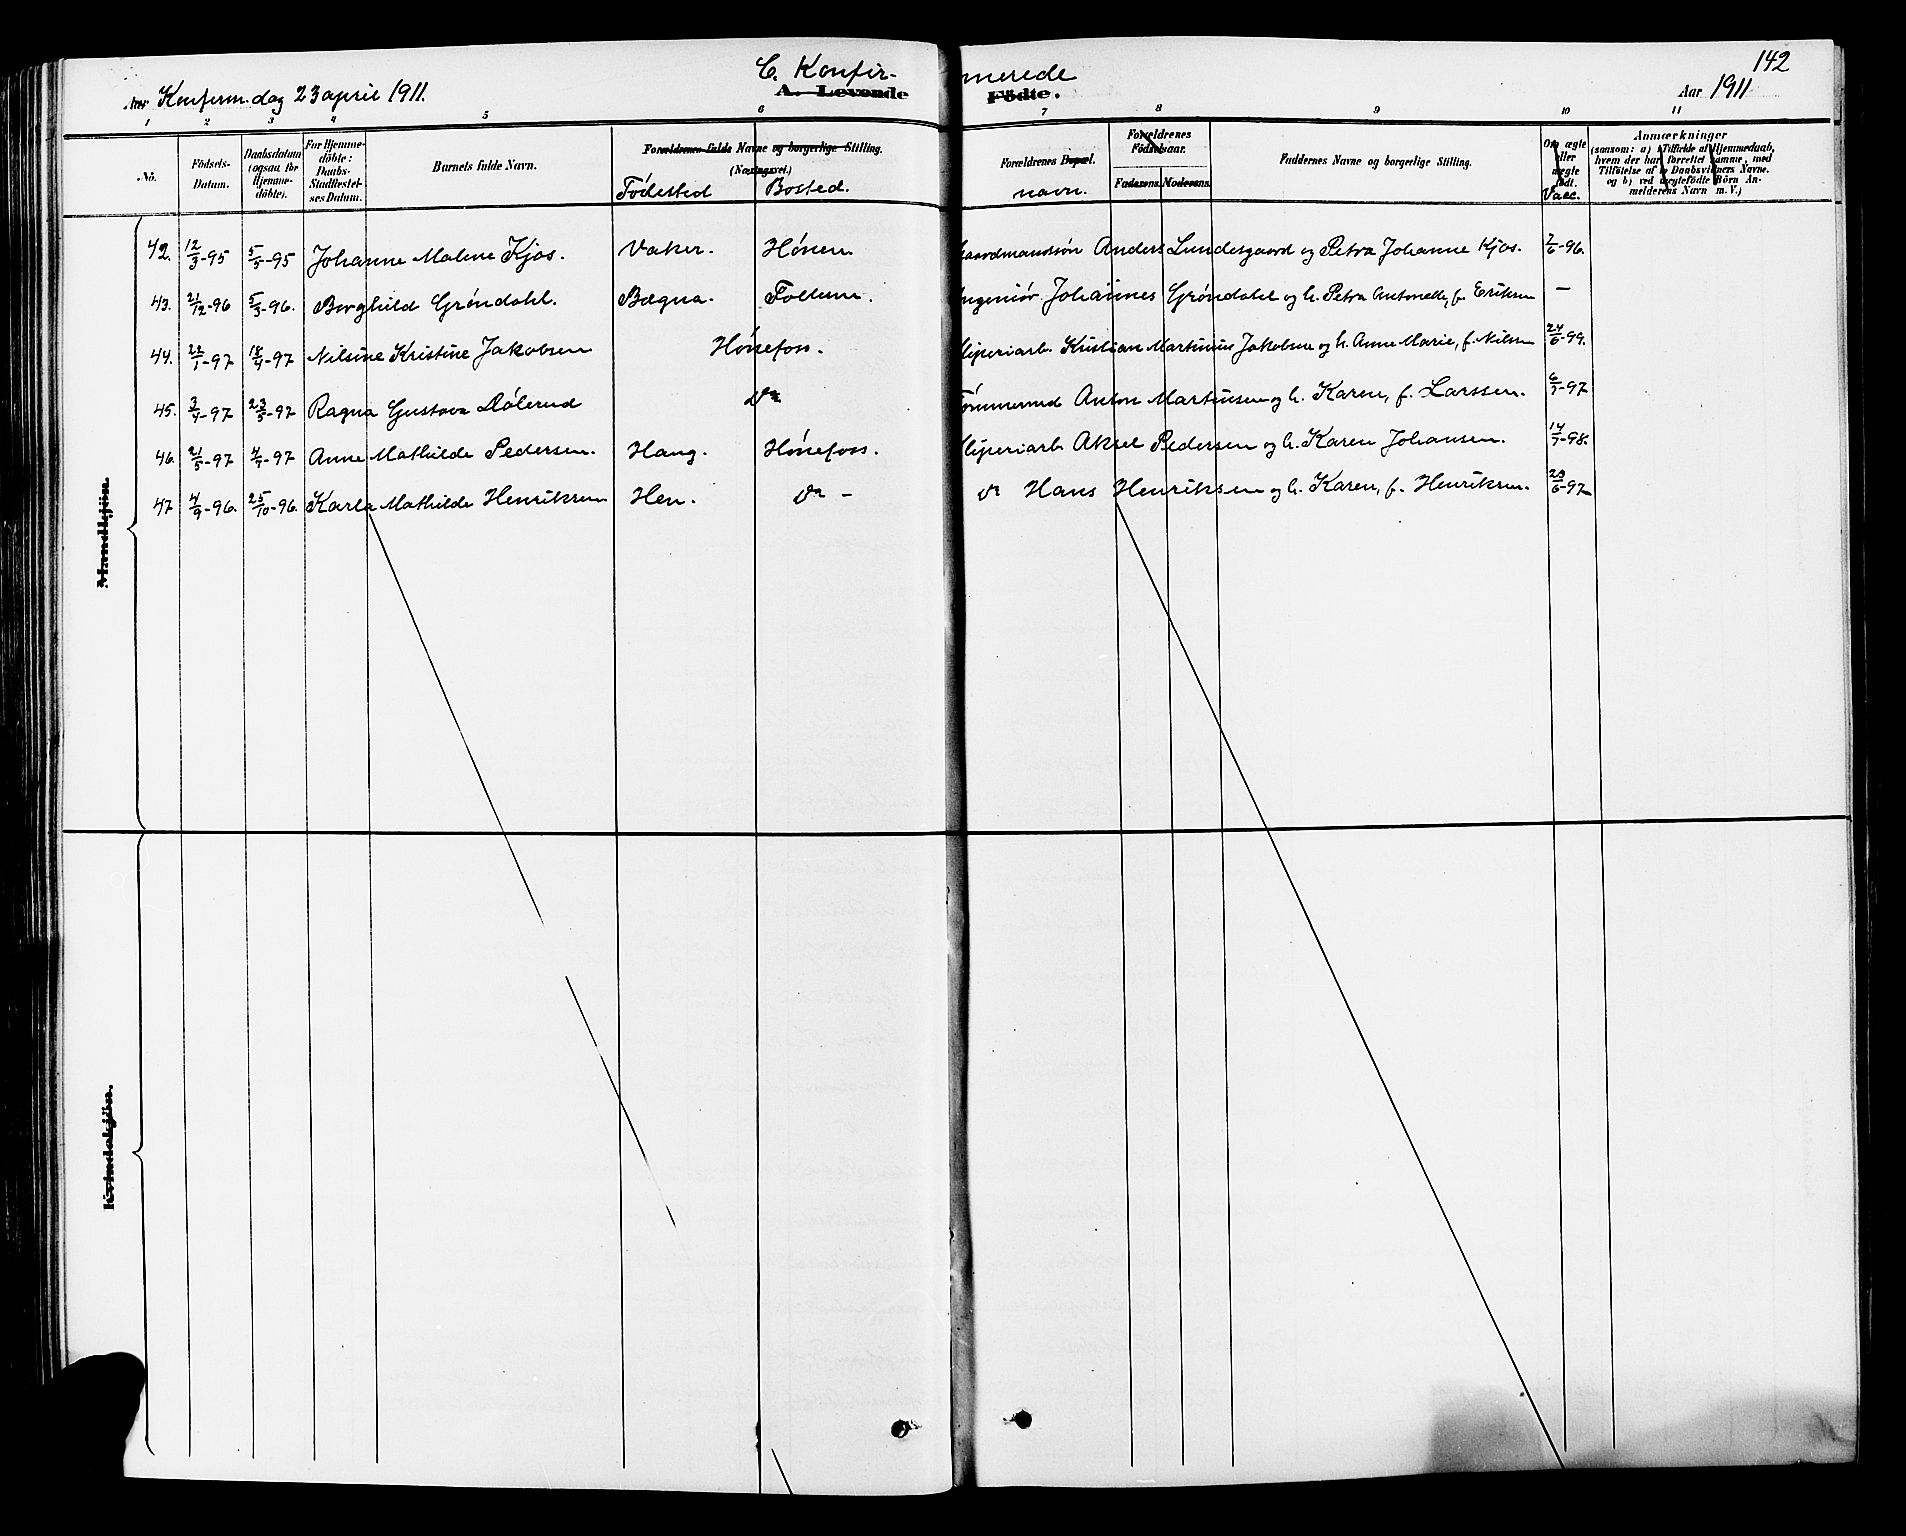 142
C. Konfirmerede
Aar Konfirm.dag 23 april 1911.
A. Levende Födte.
Aar 1911
1 2 3 4 5 6 7 8 9 10 11
No. Födsels-Datum. Daabsdatum (ogsaa for Hjemmedöbte). For Hjemmedöbte: Daabs-Stadfestelses Datum. Barnets fulde Navn. Forældrenes fulde Navne og borgerlige Stilling. (Næringsvei.) Födested Bosted. Forældrenes Bopæl. navn. Forældrenes Födselsaar. Faderens. Moderens. Faddernes Navne og borgerlige Stilling. Om ægte eller uægte födt. Vacc. Anmærkninger (saasom: a) i Tilfælde af Hjemmedaab, hvem der har forrettet samme, med Tilföielse af to Daabsvidners Navne. og b) ved uægtefödte Börn Anmelderens Navn m. V.)
Mandkjön.
42. 12/3-95 5/5-95 Johanne Malene Kjos. Vaker. Hönen. Gaardmandssön Anders Lundesgaard og Petra Johanne Kjos. 7/6-96.
43. 21/12-96 5/3-96. Borghild Gröndahl. Bægna. Follum. Ingeniör Johannes Gröndahl og h. Petra Antonette, f. Eriksen —
44. 22/1-97 18/4-97 Nilsine Kristine Jakobsen Hönefoss. Sliperiarb. Kristian Martinius Jakobsen og h. Anne Marie, f. Nilsen 24/6-99.
45. 3/4-97 23/5-97 Ragna Gustava Dölerud Do Tömmermd Anton Martinsen og h. Karen, f. Larssen. 6/7-97
46. 21/5-97 4/7-97 Anne Mathilde Pedersen. Haug. Hönefoss. Sliperiarb. Aksel Pedersen og h. Karen Johansen. 14/7-98.
47 4/9-96. 25/10-96. Karla Mathilde Henriksen Hen. Do - Do Hans Henriksen og h. Karen, f. Henriksen. 23/6-97
Kvindekjön.